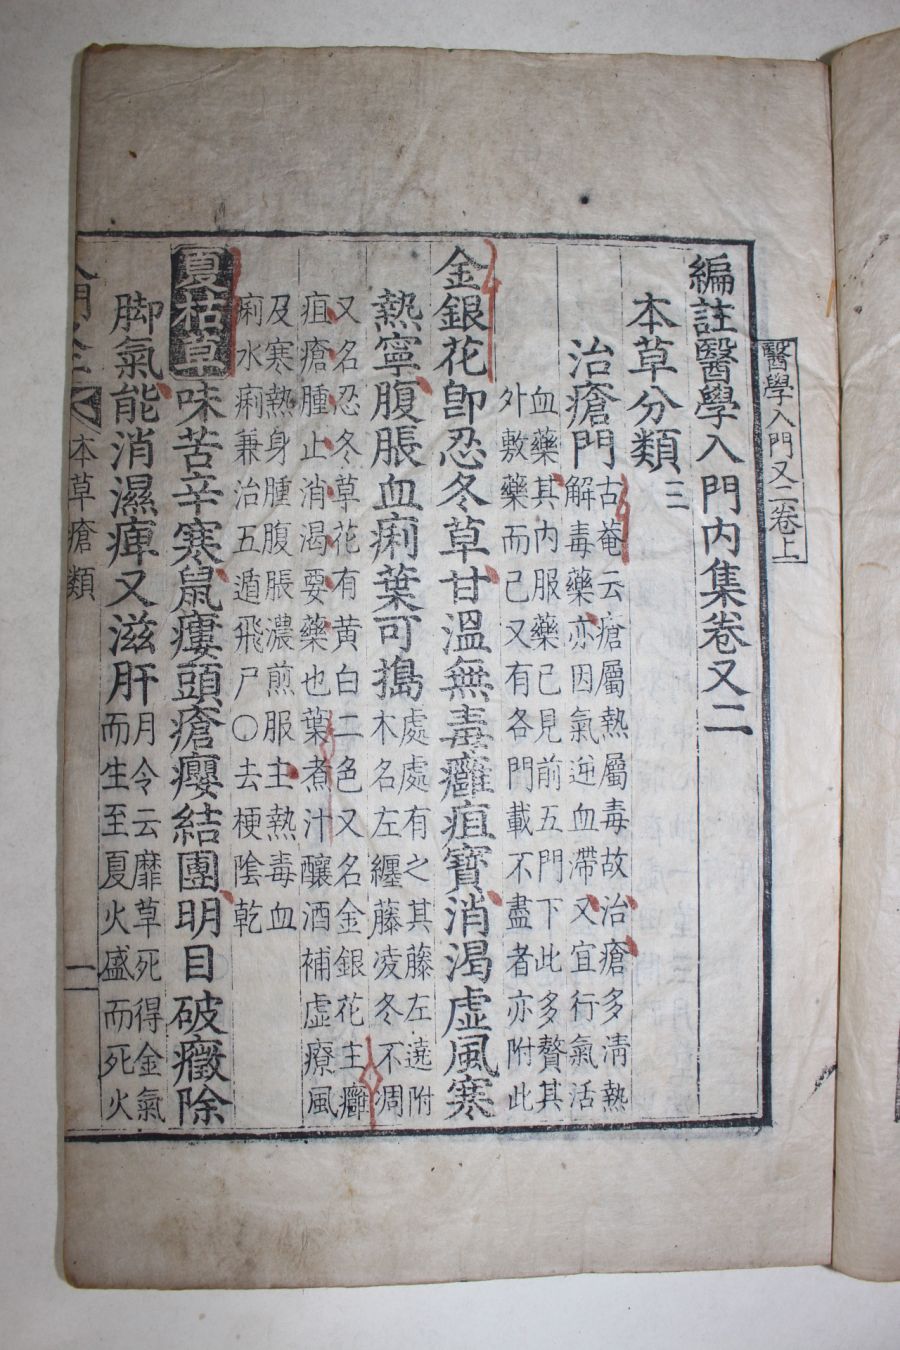 醫學入門又二卷上
編註醫學入門內集卷又二
本草分類 三
治瘡門
古菴云瘡屬熱屬毒故治瘡多清熱
解毒藥亦因氣逆血滯又宜行氣活
血藥其內服藥已見前五門下此多贅其
外敷藥而已又有各門載不盡者亦附此
金銀花卽忍冬草甘溫無毒癰疽寶消渴虛風寒
熱寧腹脹血痢葉可搗
處處有之其藤左遶附
木名左纏藤凌冬不凋
又名忍冬草花有黄白二色又名金銀花主癰
疽瘡腫止消渴要藥也葉煮汁釀酒補虛療風
及寒熱身腫腹脹濃煎服主熱毒血
痢水痢兼治五遁飛尸〇去梗陰乾
夏枯草味苦辛寒鼠瘻頭瘡癭結團明目破癥除
脚氣能消濕痺又滋肝
月令云靡草死得金氣
而生至夏火盛而死火
本草瘡類
一